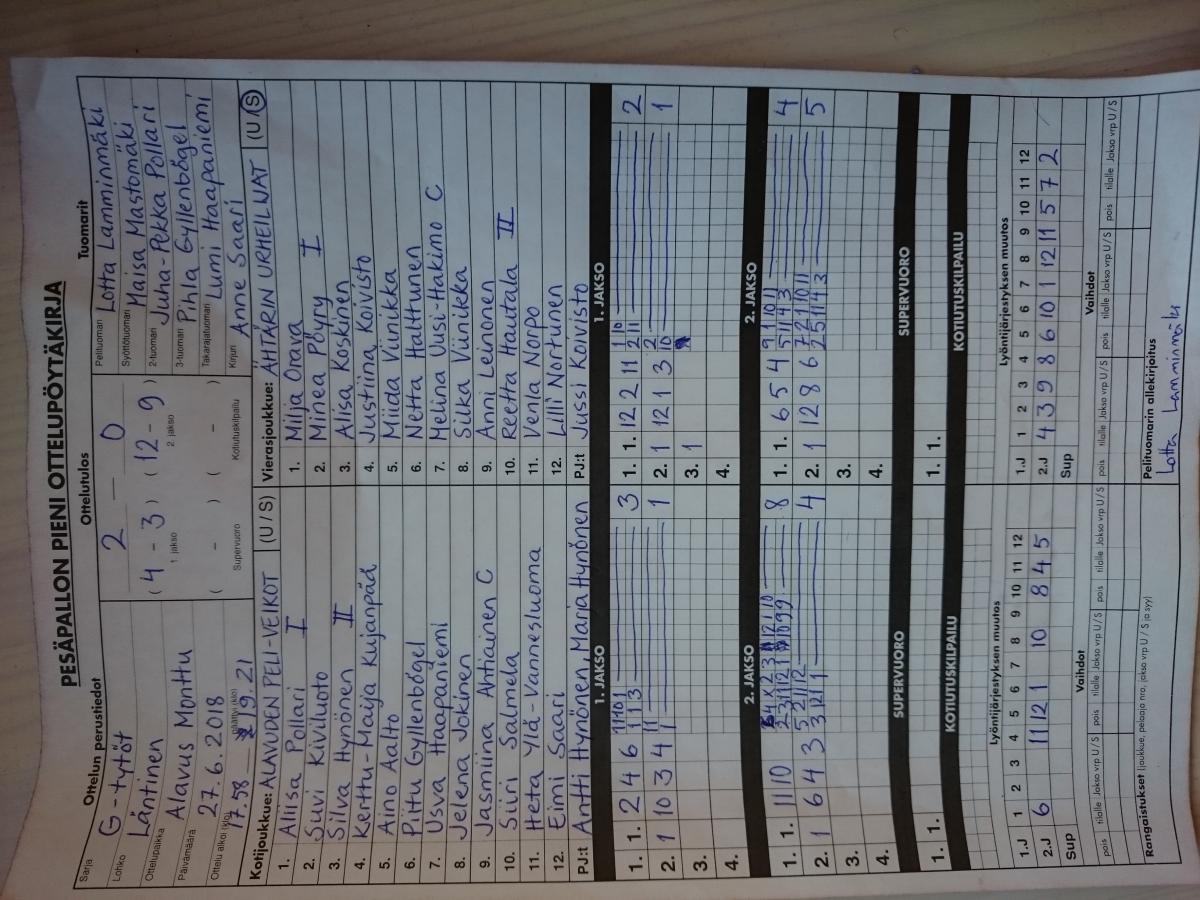 PESÄPALLON PIENI OTTELUPÖYTÄKIRJA
Ottelun perustiedot
Sarja G-tytöt
Lohko Läntinen
Ottelupaikka Alavus Monttu
Päivämäärä 27.6.2018
Ottelu alkoi (klo) 17.58 päättyi (klo) 19.21
Ottelutulos
2 — 0
( 4 - 3 ) ( 12 - 9 )
1. jakso 2. jakso
( - ) ( - )
Supervuoro Kotiutuskilpailu
Tuomarit
Pelituomari Lotta Lamminmäki
Syöttötuomari Maisa Mastomäki
2-tuomari Juha-Pekka Pollari
3-tuomari Pihla Gyllenbögel
Takarajatuomari Lumi Haapaniemi
Kirjuri Anne Saari
Kotijoukkue: ALAVUDEN PELI-VEIKOT (U / S)
1. Aliisa Pollari I
2. Suvi Kiviluoto
3. Silva Hynönen II
4. Kerttu-Maija Kujanpää
5. Aino Aalto
6. Piitu Gyllenbögel
7. Usva Haapaniemi
8. Jelena Jokinen
9. Jasmiina Ahtiainen C
10. Siiri Salmela
11. Heta Ylä-Vannesluoma
12. Eimi Saari
PJ:t Antti Hynönen, Marja Hynönen
Vierasjoukkue: ÄHTÄRIN URHEILIJAT (U / S)
1. Milja Orava
2. Minea Pöyry I
3. Alisa Koskinen
4. Justiina Koivisto
5. Miida Viinikka
6. Netta Halttunen
7. Melina Uusi-Hakimo C
8. Silka Viinikka
9. Anni Leinonen
10. Reetta Hautala II
11. Venla Norpo
12. Lilli Nortunen
PJ:t Jussi Koivisto
1. JAKSO
1. 1. 2 4 6 3
2. 1 10 3 4 1
3.
4.
1. JAKSO
1. 1. 12 2 11 2
2. 1 12 1 3 1
3. 1
4.
2. JAKSO
1. 1. 11 10 8
2. 1 6 4 3 4
3.
4.
2. JAKSO
1. 1. 6 5 4 4
2. 1 12 8 6 5
3.
4.
SUPERVUORO
1. 1.
SUPERVUORO
1. 1.
KOTIUTUSKILPAILU
KOTIUTUSKILPAILU
Lyöntijärjestyksen muutos
1.J 1 2 3 4 5 6 7 8 9 10 11 12
2.J 6 11 12 1 10 8 4 5
Sup
Lyöntijärjestyksen muutos
1.J 1 2 3 4 5 6 7 8 9 10 11 12
2.J 4 3 9 8 6 10 1 12 11 5 7 2
Sup
Vaihdot
pois tilalle Jakso vrp U / S pois tilalle Jakso vrp U / S pois tilalle Jakso vrp U / S
Vaihdot
pois tilalle Jakso vrp U / S pois tilalle Jakso vrp U / S pois tilalle Jakso vrp U / S
Rangaistukset (joukkue, pelaaja nro, jakso vrp U / S ja syy)
Pelituomarin allekirjoitus
Lotta Lamminmäki